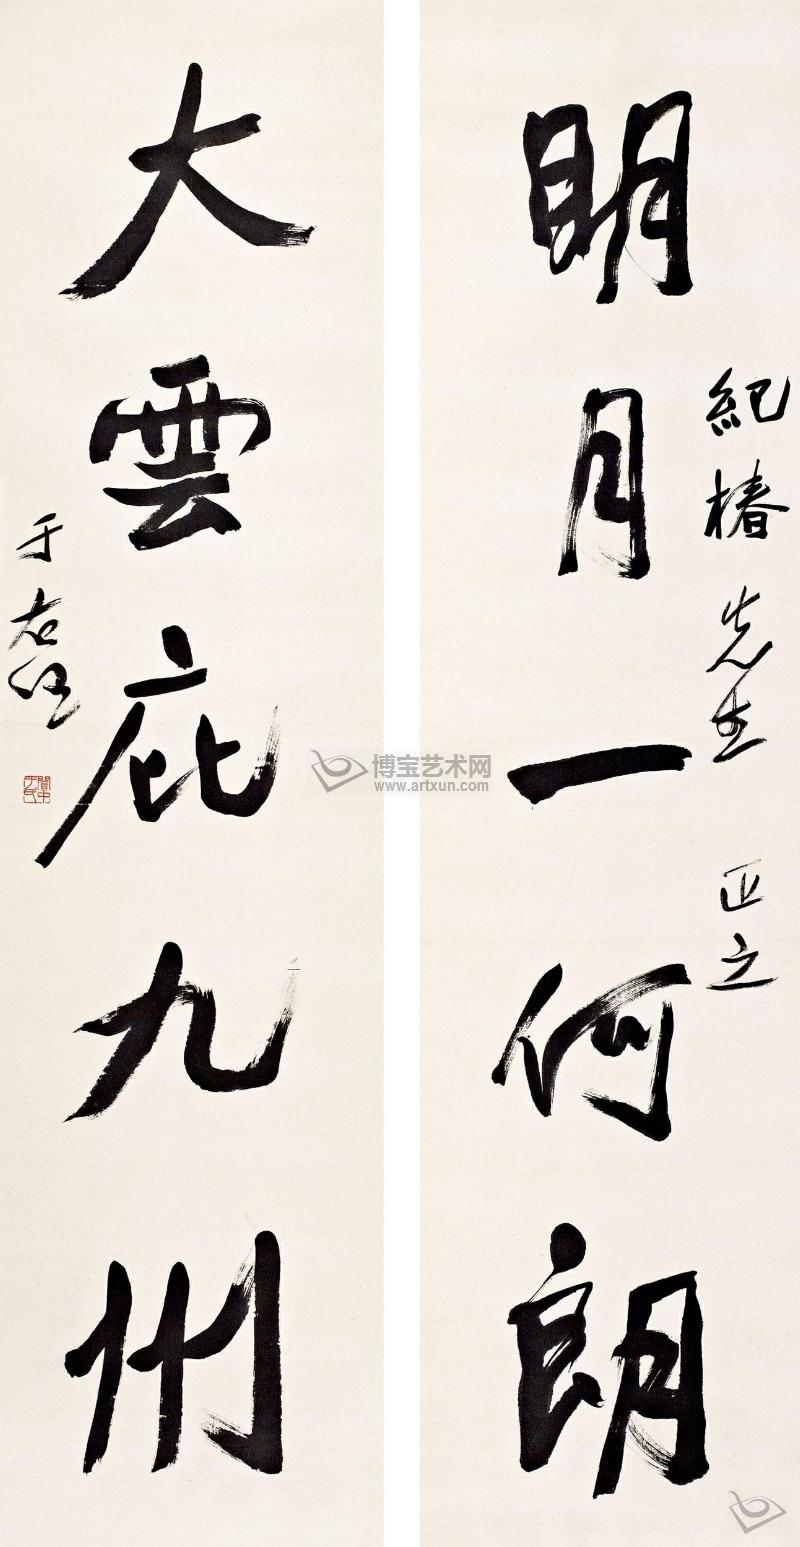 紀椿先生 正之
明月一何朗
大雲庇九州
于右任
關中于氏
博宝艺术网
www.artxun.com